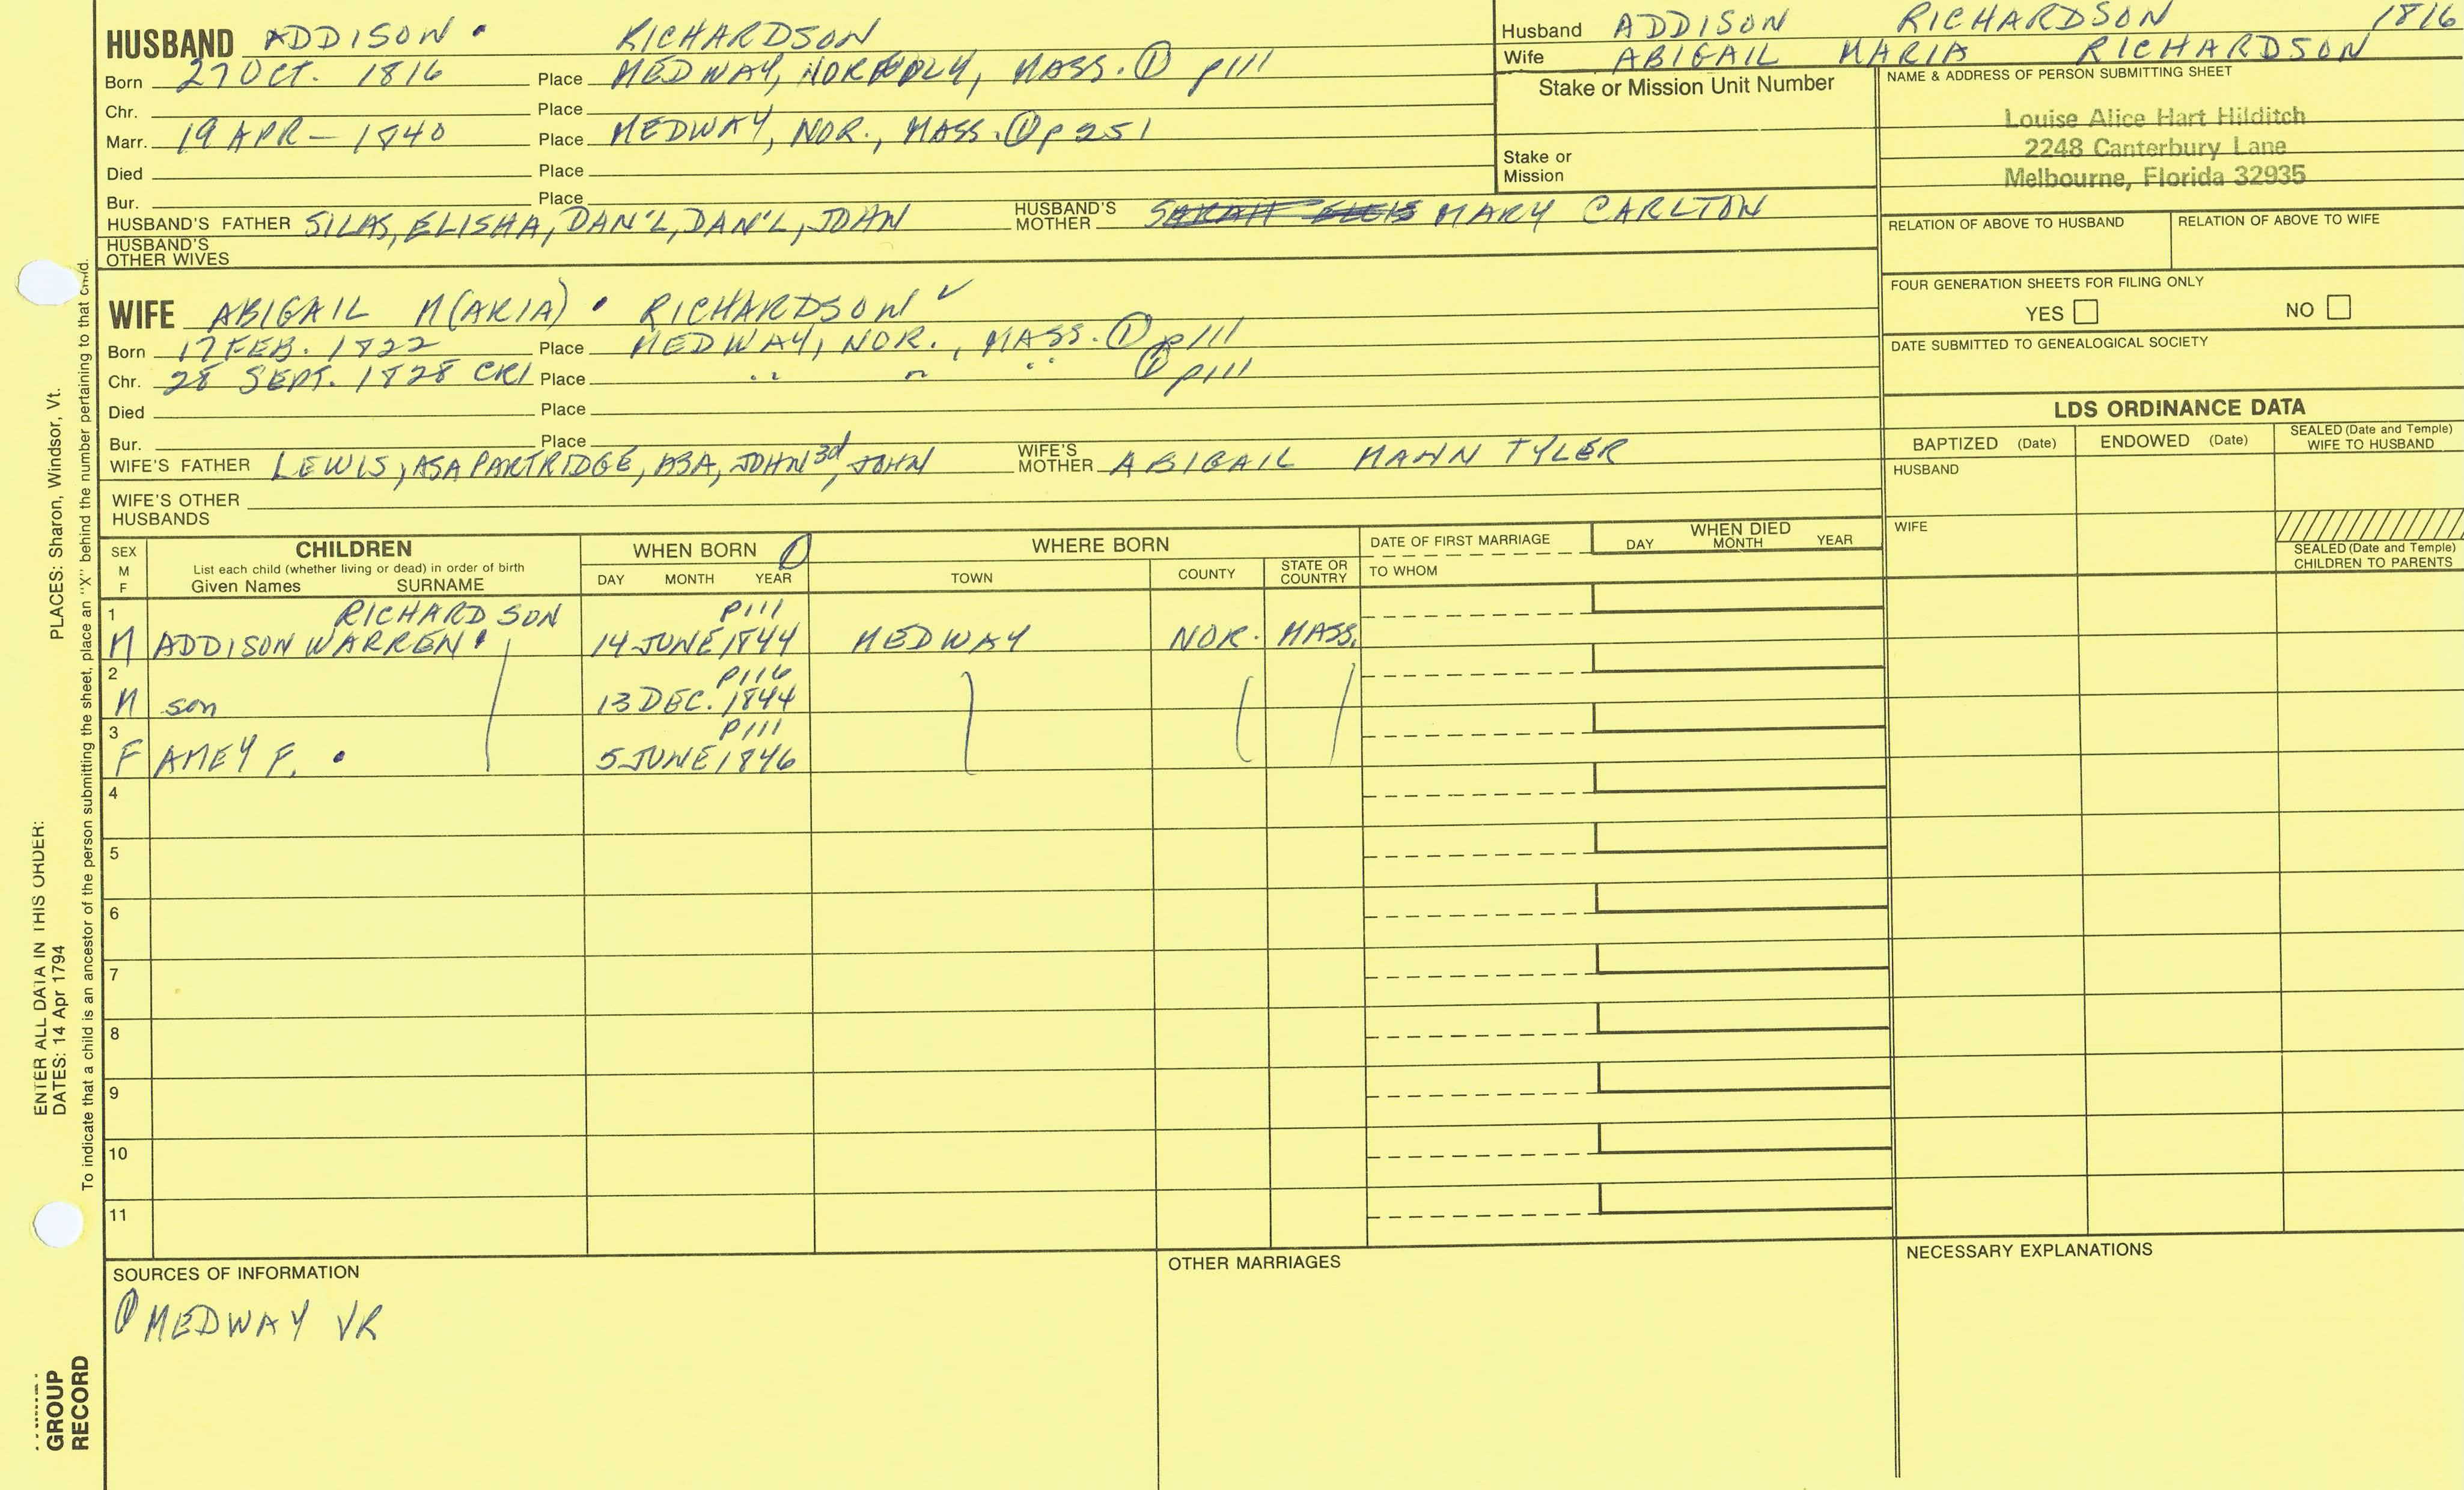 HUSBAND ADDISON • RICHARDSON
Born 27 OCT. 1816 Place MEDWAY, NORFOLK, MASS. ① p111
Chr. Place
Marr. 19 APR - 1840 Place MEDWAY, NOR., MASS. ① p 251
Died Place
Bur. Place
HUSBAND'S FATHER SILAS, ELISHA, DAN'L, DAN'L, JOHN HUSBAND'S MOTHER MARY CARLTON
HUSBAND'S OTHER WIVES
Husband ADDISON RICHARDSON 1816
Wife ABIGAIL MARIA RICHARDSON
Stake or Mission Unit Number
Stake or Mission
NAME & ADDRESS OF PERSON SUBMITTING SHEET
Louise Alice Hart Hilditch
2248 Canterbury Lane
Melbourne, Florida 32935
RELATION OF ABOVE TO HUSBAND RELATION OF ABOVE TO WIFE
FOUR GENERATION SHEETS FOR FILING ONLY
YES NO
DATE SUBMITTED TO GENEALOGICAL SOCIETY
WIFE ABIGAIL M(ARIA) • RICHARDSON ✓
Born 17 FEB. 1822 Place MEDWAY, NOR., MASS. ① p111
Chr. 28 SEPT. 1828 CR1 Place " " " ① p111
Died Place
Bur. Place
WIFE'S FATHER LEWIS, ASA PARTRIDGE, ASA, JOHN 3d, JOHN WIFE'S MOTHER ABIGAIL MANN TYLER
WIFE'S OTHER HUSBANDS
LDS ORDINANCE DATA
BAPTIZED (Date) ENDOWED (Date) SEALED (Date and Temple) WIFE TO HUSBAND
HUSBAND
WIFE
SEALED (Date and Temple) CHILDREN TO PARENTS
SEX M F CHILDREN WHEN BORN ① WHERE BORN DATE OF FIRST MARRIAGE WHEN DIED
List each child (whether living or dead) in order of birth
Given Names SURNAME DAY MONTH YEAR TOWN COUNTY STATE OR COUNTRY TO WHOM DAY MONTH YEAR
1 RICHARDSON P111
M ADDISON WARREN • 14 JUNE 1844 MEDWAY NOR. MASS.
2 P116
M son 13 DEC. 1844
3 P111
F AMEY F. • 5 JUNE 1846
4
5
6
7
8
9
10
11
SOURCES OF INFORMATION
① MEDWAY VR
OTHER MARRIAGES
NECESSARY EXPLANATIONS
ENTER ALL DATA IN THIS ORDER:
DATES: 14 Apr 1794 PLACES: Sharon, Windsor, Vt.
To indicate that a child is an ancestor of the person submitting the sheet, place an "X" behind the number pertaining to that child.
GROUP
RECORD